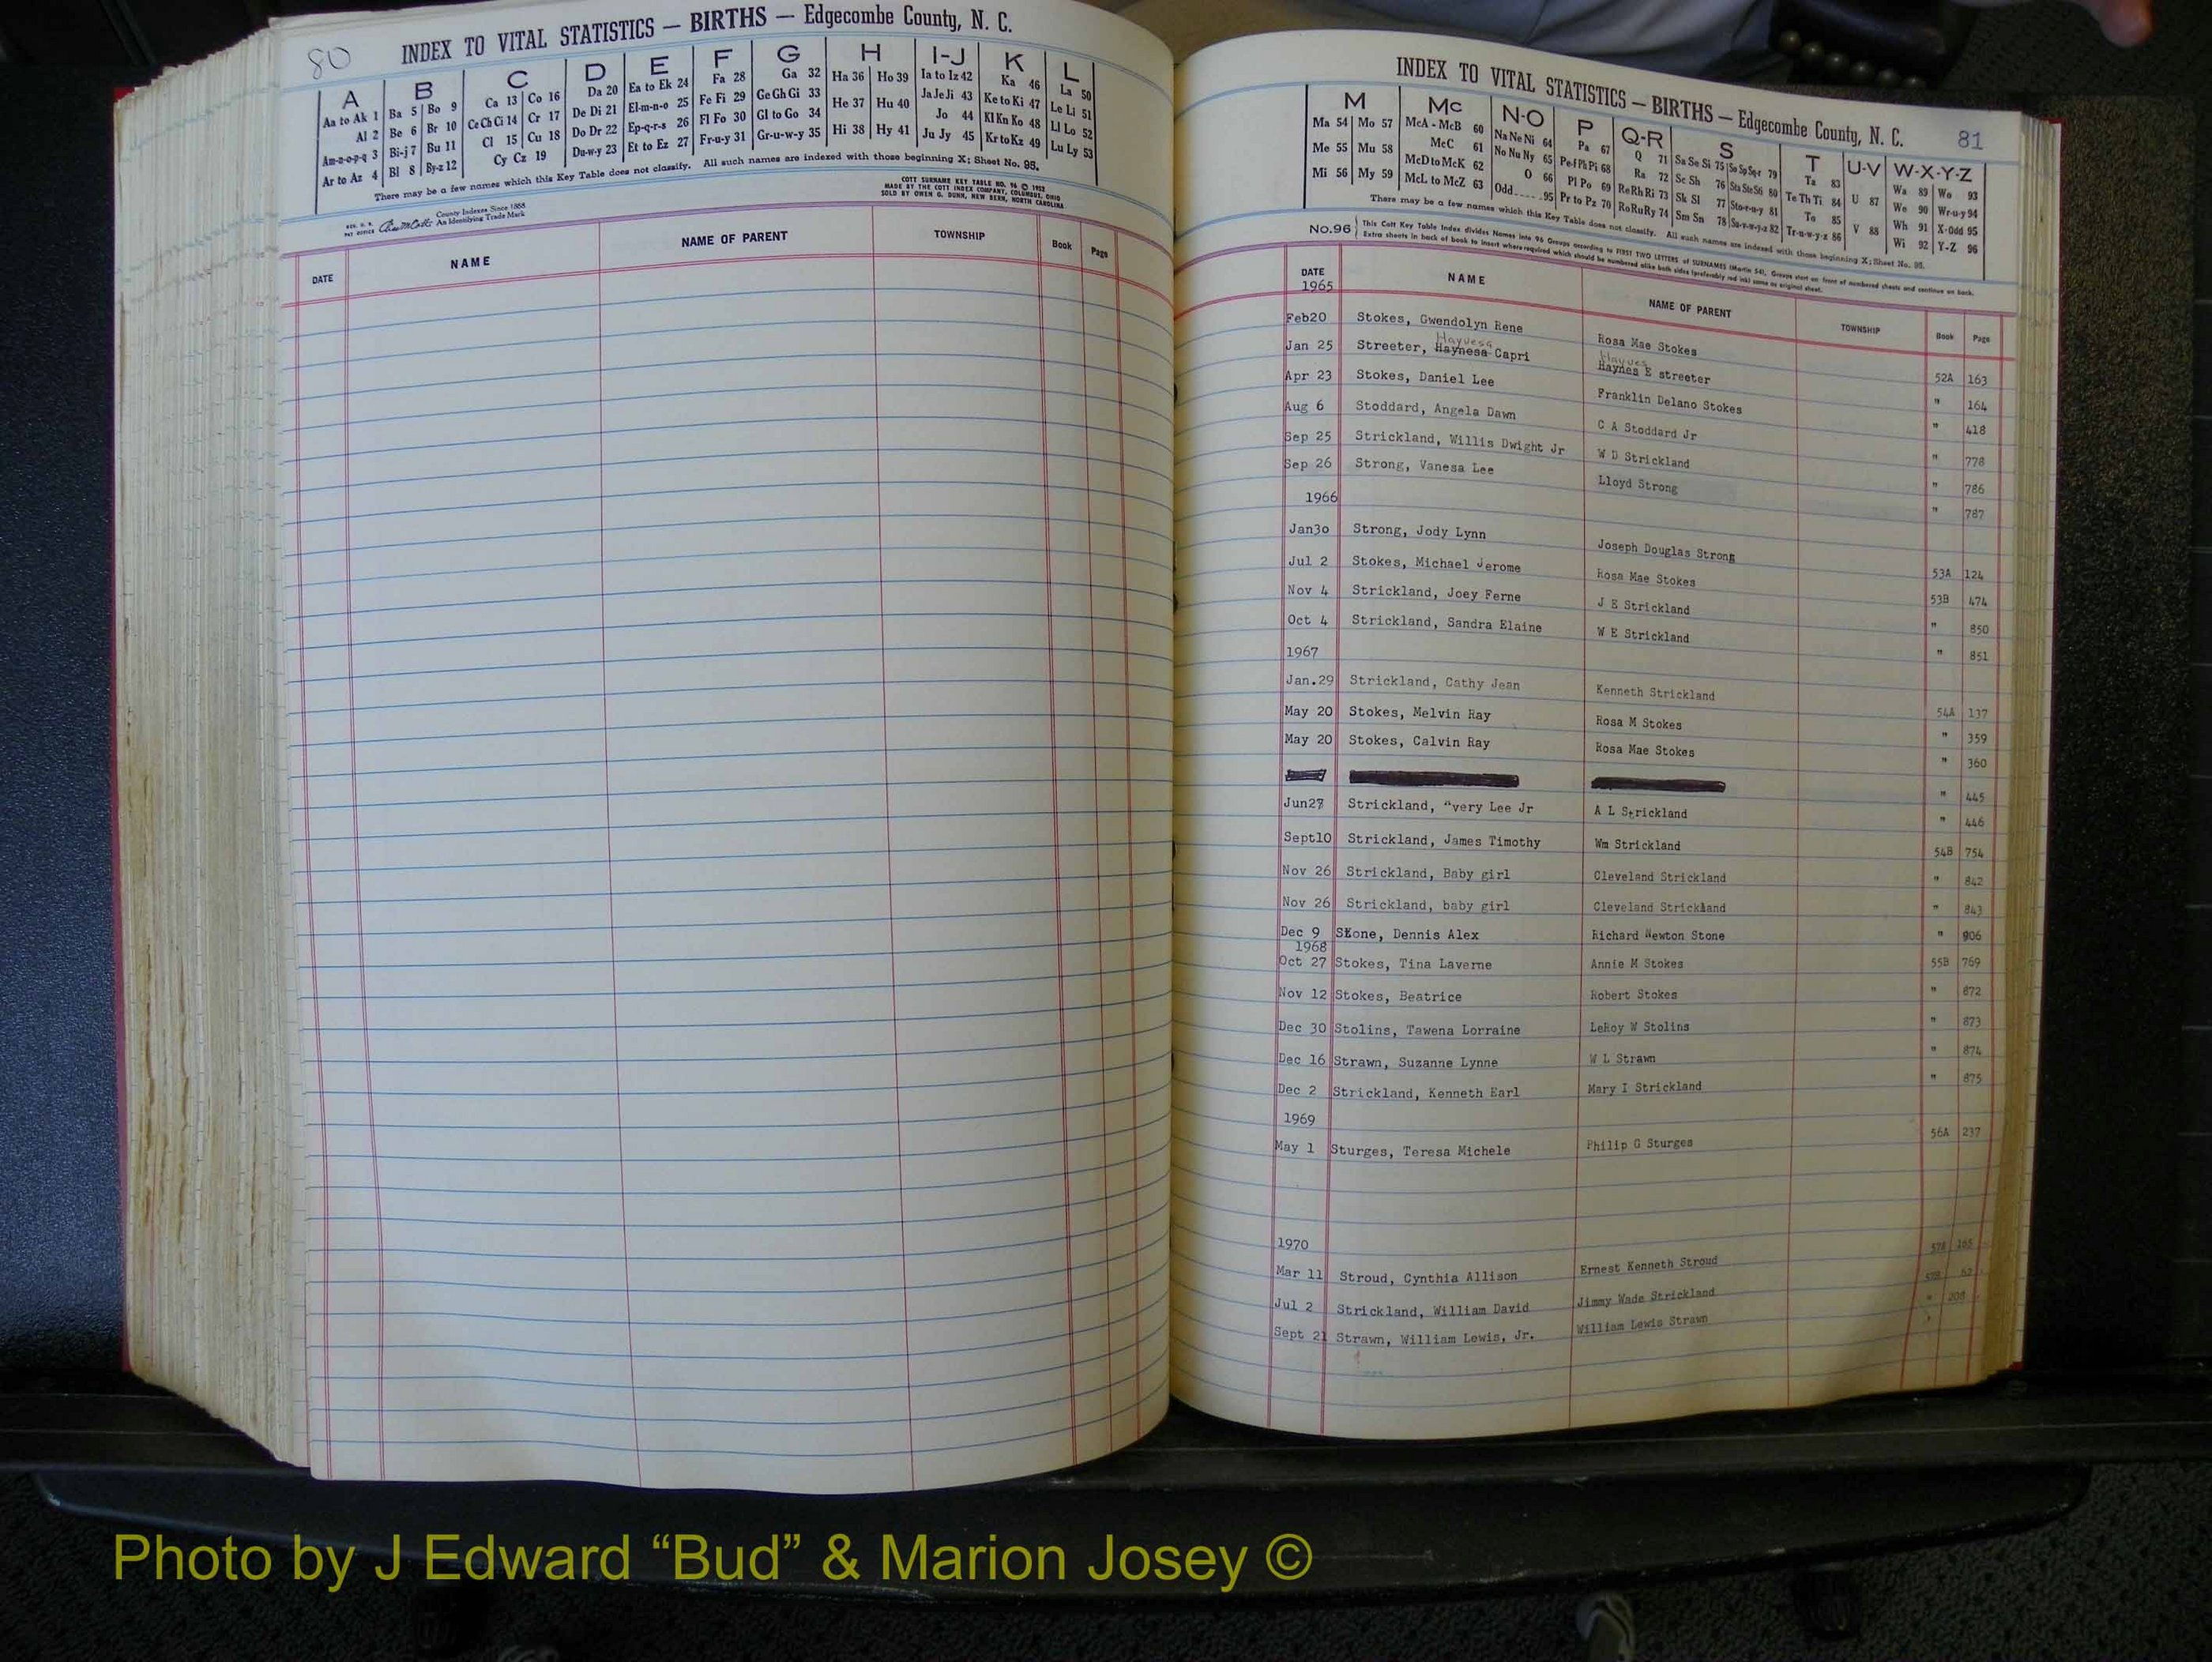 80
INDEX TO VITAL STATISTICS — BIRTHS — Edgecombe County, N. C.
A B C D E F G H I-J K L
Aa to Ak 1 Ba 5 Bo 9 Ca 13 Co 16 Da 20 Ea to Ek 24 Fa 28 Ga 32 Ha 36 Ho 39 Ia to Iz 42 Ka 46 La 50
Al 2 Be 6 Br 10 Ce Ch Ci 14 Cr 17 De Di 21 El-m-n-o 25 Fe Fi 29 Ge Gh Gi 33 He 37 Hu 40 Ja Je Ji 43 Ke to Ki 47 Le Li 51
Am-n-o-p-q 3 Bi-j 7 Bu 11 Cl 15 Cu 18 Do Dr 22 Ep-q-r-s 26 Fl Fo 30 Gl to Go 34 Hi 38 Hy 41 Jo 44 Kl Kn Ko 48 Ll Lo 52
Ar to Az 4 Bl 8 By-z 12 Cy Cz 19 Du-w-y 23 Et to Ez 27 Fr-u-y 31 Gr-u-w-y 35 Ju Jy 45 Kr to Kz 49 Lu Ly 53
There may be a few names which this Key Table does not classify. All such names are indexed with those beginning X; Sheet No. 95.
COTT SURNAME KEY TABLE NO. 96 © 1952
MADE BY THE COTT INDEX COMPANY, COLUMBUS, OHIO
SOLD BY OWEN G. DUNN, NEW BERN, NORTH CAROLINA
County Indexes Since 1888
An Identifying Trade Mark
DATE NAME NAME OF PARENT TOWNSHIP Book Page
INDEX TO VITAL STATISTICS — BIRTHS — Edgecombe County, N. C. 81
M Mc N-O P Q-R S T U-V W-X-Y-Z
Ma 54 Mo 57 McA - McB 60 Na Ne Ni 64 Pa 67 Q 71 Sa Se Si 75 So Sp Sq-r 79 Ta 83 U 87 Wa 89 Wo 93
Me 55 Mu 58 McC 61 No Nu Ny 65 Pe-f Ph Pi 68 Ra 72 Sc Sh 76 Sta Ste Sti 80 Te Th Ti 84 V 88 We 90 Wr-u-y 94
Mi 56 My 59 McD to McK 62 O 66 Pl Po 69 Re Rh Ri 73 Sk Sl 77 Sto-r-u-y 81 To 85 Wh 91 X-Odd 95
McL to McZ 63 Odd 95 Pr to Pz 70 Ro Ru Ry 74 Sm Sn 78 Su-v-w-y-z 82 Tr-u-w-y-z 86 Wi 92 Y-Z 96
There may be a few names which this Key Table does not classify. All such names are indexed with those beginning X; Sheet No. 95.
No.96 This Cott Key Table Index divides Names into 96 Groups according to FIRST TWO LETTERS of SURNAMES (Martin 54). Groups start on front of numbered sheets and continue on back.
Extra sheets in back of book to insert where required which should be numbered alike both sides (preferably red ink) same as original sheet.
DATE NAME NAME OF PARENT TOWNSHIP Book Page
1965
Feb20 Stokes, Gwendolyn Rene Rosa Mae Stokes 52A 163
Jan 25 Streeter, Haynesa Capri Haynes E streeter " 164
Apr 23 Stokes, Daniel Lee Franklin Delano Stokes " 418
Aug 6 Stoddard, Angela Dawn C A Stoddard Jr " 778
Sep 25 Strickland, Willis Dwight Jr W D Strickland " 786
Sep 26 Strong, Vanesa Lee Lloyd Strong " 787
1966
Jan30 Strong, Jody Lynn Joseph Douglas Strong 53A 124
Jul 2 Stokes, Michael Jerome Rosa Mae Stokes 53B 474
Nov 4 Strickland, Joey Ferne J E Strickland " 850
Oct 4 Strickland, Sandra Elaine W E Strickland " 851
1967
Jan.29 Strickland, Cathy Jean Kenneth Strickland 54A 137
May 20 Stokes, Melvin Ray Rosa M Stokes " 359
May 20 Stokes, Calvin Ray Rosa Mae Stokes " 360
" 445
Jun27 Strickland, "very Lee Jr A L Strickland " 446
Sept10 Strickland, James Timothy Wm Strickland 54B 754
Nov 26 Strickland, Baby girl Cleveland Strickland " 842
Nov 26 Strickland, baby girl Cleveland Strickland " 843
Dec 9 Stone, Dennis Alex Richard Newton Stone " 906
1968
Oct 27 Stokes, Tina Laverne Annie M Stokes 55B 769
Nov 12 Stokes, Beatrice Robert Stokes " 872
Dec 30 Stolins, Tawena Lorraine LeRoy W Stolins " 873
Dec 16 Strawn, Suzanne Lynne W L Strawn " 874
Dec 2 Strickland, Kenneth Earl Mary I Strickland " 875
1969
May 1 Sturges, Teresa Michele Philip G Sturges 56A 237
1970
Mar 11 Stroud, Cynthia Allison Ernest Kenneth Stroud 165
Jul 2 Strickland, William David Jimmy Wade Strickland 62
Sept 21 Strawn, William Lewis, Jr. William Lewis Strawn " 208
Photo by J Edward “Bud” & Marion Josey ©